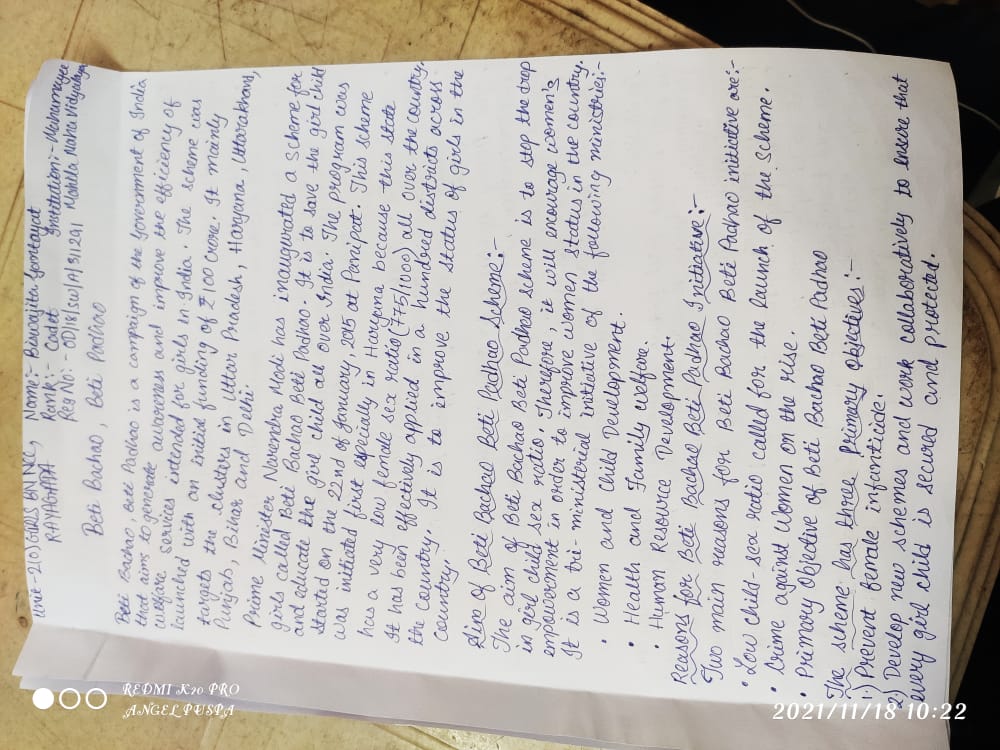 Unit-21(O) GIRLS BN NCC, Name:- Biswajita Gontayat
RAYAGADA Rank:- Cadet Institution:- Mahamayee
Reg No:- OD/18/SW/A/ Mahila Mahavidyalaya
Beti Bachao, Beti Padhao
Beti Bachao, Beti Padhao is a campaign of the Government of India
that aims to generate awareness and improve the efficiency of
welfare services intended for girls in India. The scheme was
launched with an initial funding of ₹100 crore. It mainly
targets the clusters in Uttar Pradesh, Haryana, Uttarakhand,
Punjab, Bihar and Delhi.
Prime Minister Narendra Modi has inaugurated a Scheme for
girls called Beti Bachao Beti Padhao. It is to save the girl child
and educate the give child all over India. The program was
started on the 22nd of January, 2015 at Panipat. This scheme
was initiated first especially in Haryana because this state
has a very low female sex ratio (775/1000) all over the country.
It has been effectively applied in a hundred districts across
the Country. It is to improve the status of girls in the
country.
Aim of Beti Bachao Beti Padhao Scheme:-
The aim of Beti Bachao Beti Padhao scheme is to stop the drop
in girl child sex ratio. Therefore, it will encourage women's
empowerment in order to improve women status in the country.
It is a tri-ministerial initiative of the following ministries:-
• Women and Child Development.
• Health and Family welfare.
• Human Resource Development.
Reasons for Beti Bachao Beti Padhao Initiative:-
Two main reasons for Beti Bachao Beti Padhao initiative are:-
• Low child-sex ratio called for the launch of the Scheme.
• Crime against Women on the rise.
• Primary Objective of Beti Bachao Beti Padhao
The scheme has three primary objectives:-
1.) Prevent female infanticide.
2.) Develop new schemes and work collaboratively to ensure that
every girl child is secured and protected.
REDMI K20 PRO
ANGEL PUSPA
2021/11/18 10:22